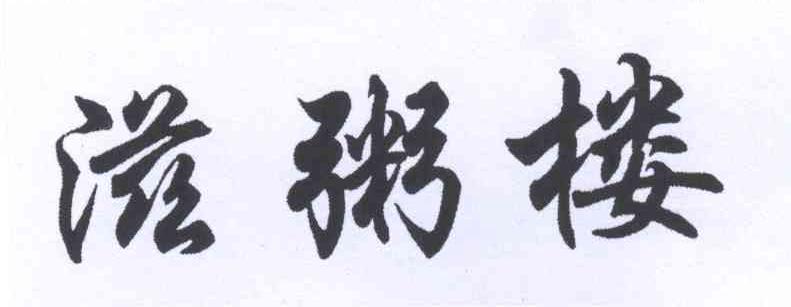 滋粥楼